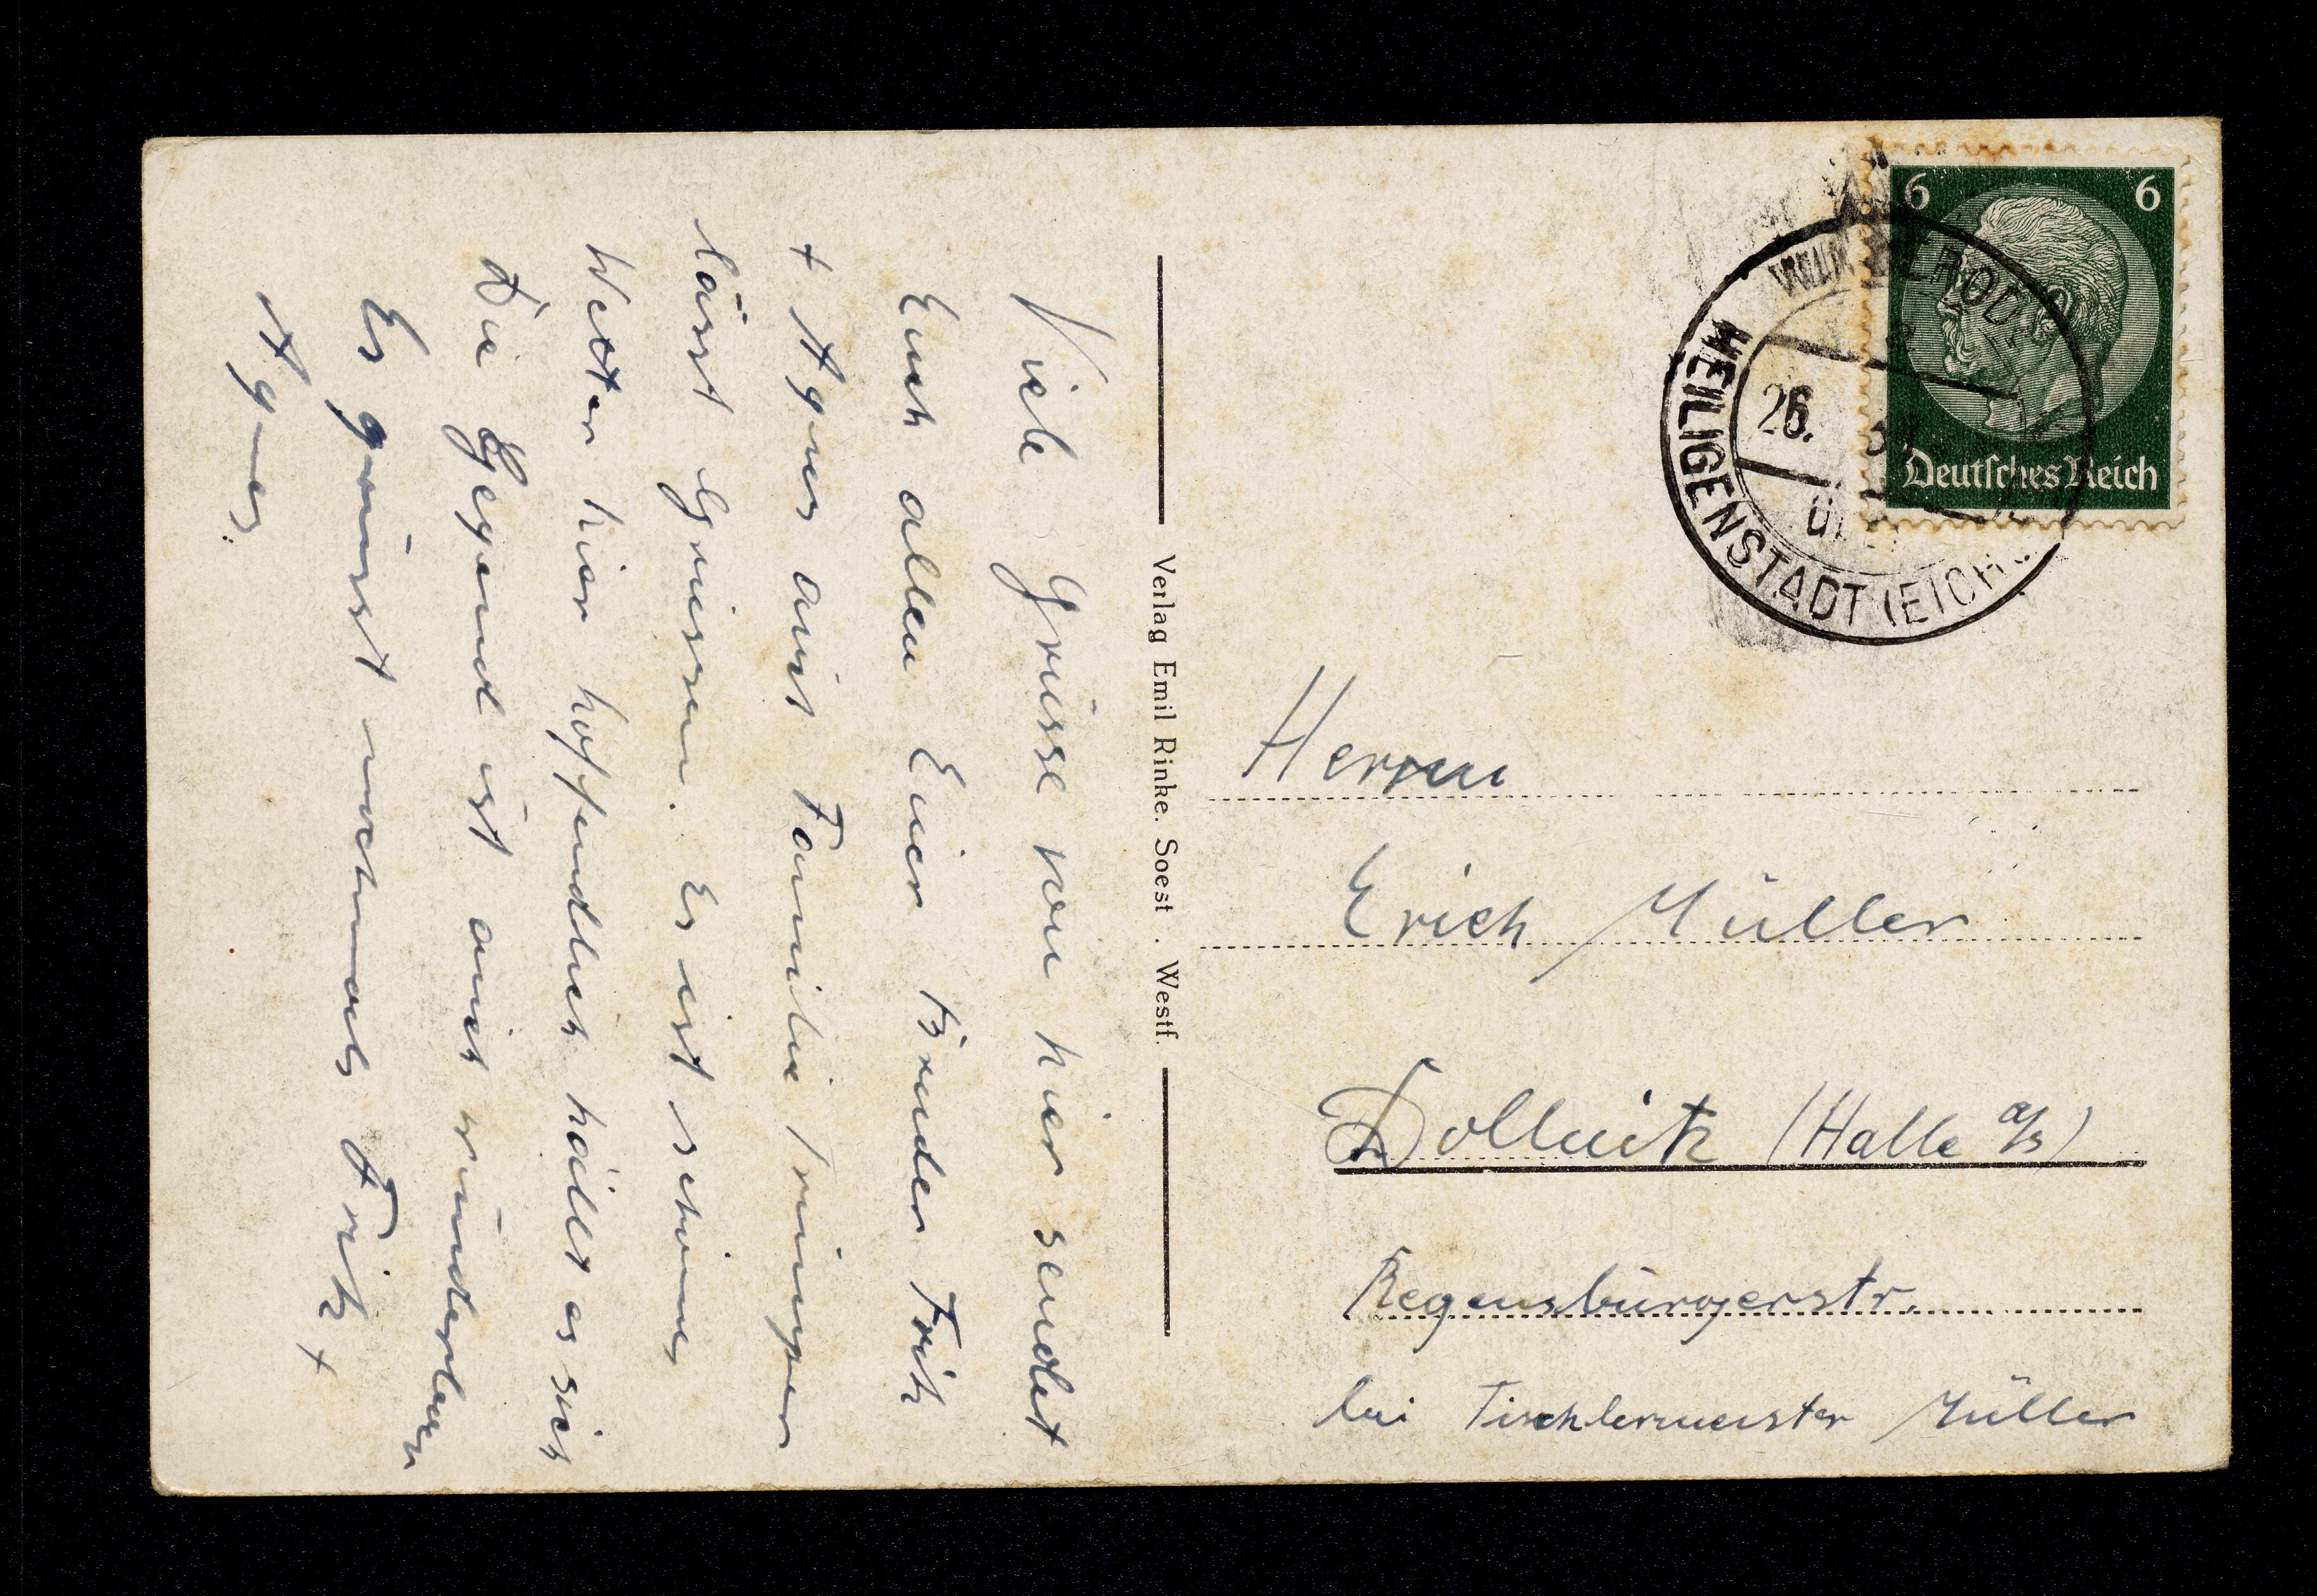 Viele Grüsse von hier sendet
Euch allen Euer Bruder Fritz
+ Agnes auist Familie
lässt Grüssen. Es ist schönes
Wetter hier hoffendlich hällt es sich
Die Gegend ist auch wunderbar
Es grüsst nochmals Fritz +
Agnes.
Verlag Emil Rinke. Soest . Westf.
6 6
Deutsches Reich
HEILIGENSTADT (EICH
26.
Herrn
Erich Müller
Döllnitz (Halle a/s)
Regensbürgerstr.
bei Tischlermeister Müller